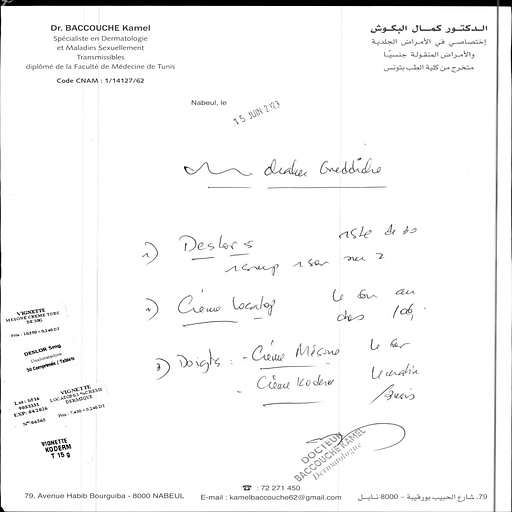 Dr. BACCOUCHE Kamel
Spécialiste en Dermatologie
et Maladies Sexuellement
Transmissibles
diplômé de la Faculté de Médecine de Tunis
Code CNAM : 1/14127/62
الـدكتـور كمـال البكـوش
إختصاصي في الأمراض الجلدية
والأمـراض المنقـولة جنسيـًا
متخرج من كلية الطب بتونس
Nabeul, le
15 JUIN 2023
1) Deslor 5
1 comp 1 soir sur 2
2) Crème Locatop le soir au
3) Doigts : - Crème Mésone le soir
- Crème Koderm le matin
VIGNETTE
MESONE CREME TUBE
DE 30G
DESLOR 5mg
Desloratadine
30 Comprimés / Tablets
VIGNETTE
LOCATOP 0.1 % CREME
DERMIQUE
Lot: 5516
9053331
EXP: 04/2026
N° 06565
Prix : 7,450 + 0,240 DT
VIGNETTE
KODERM
T 15 g
DOCTEUR
BACCOUCHE KAMEL
Dermatologue
☎ : 72 271 450
79, Avenue Habib Bourguiba - 8000 NABEUL
E-mail : kamelbaccouche62@gmail.com
79، شارع الحبيب بورقيبة – 8000 نـابـل